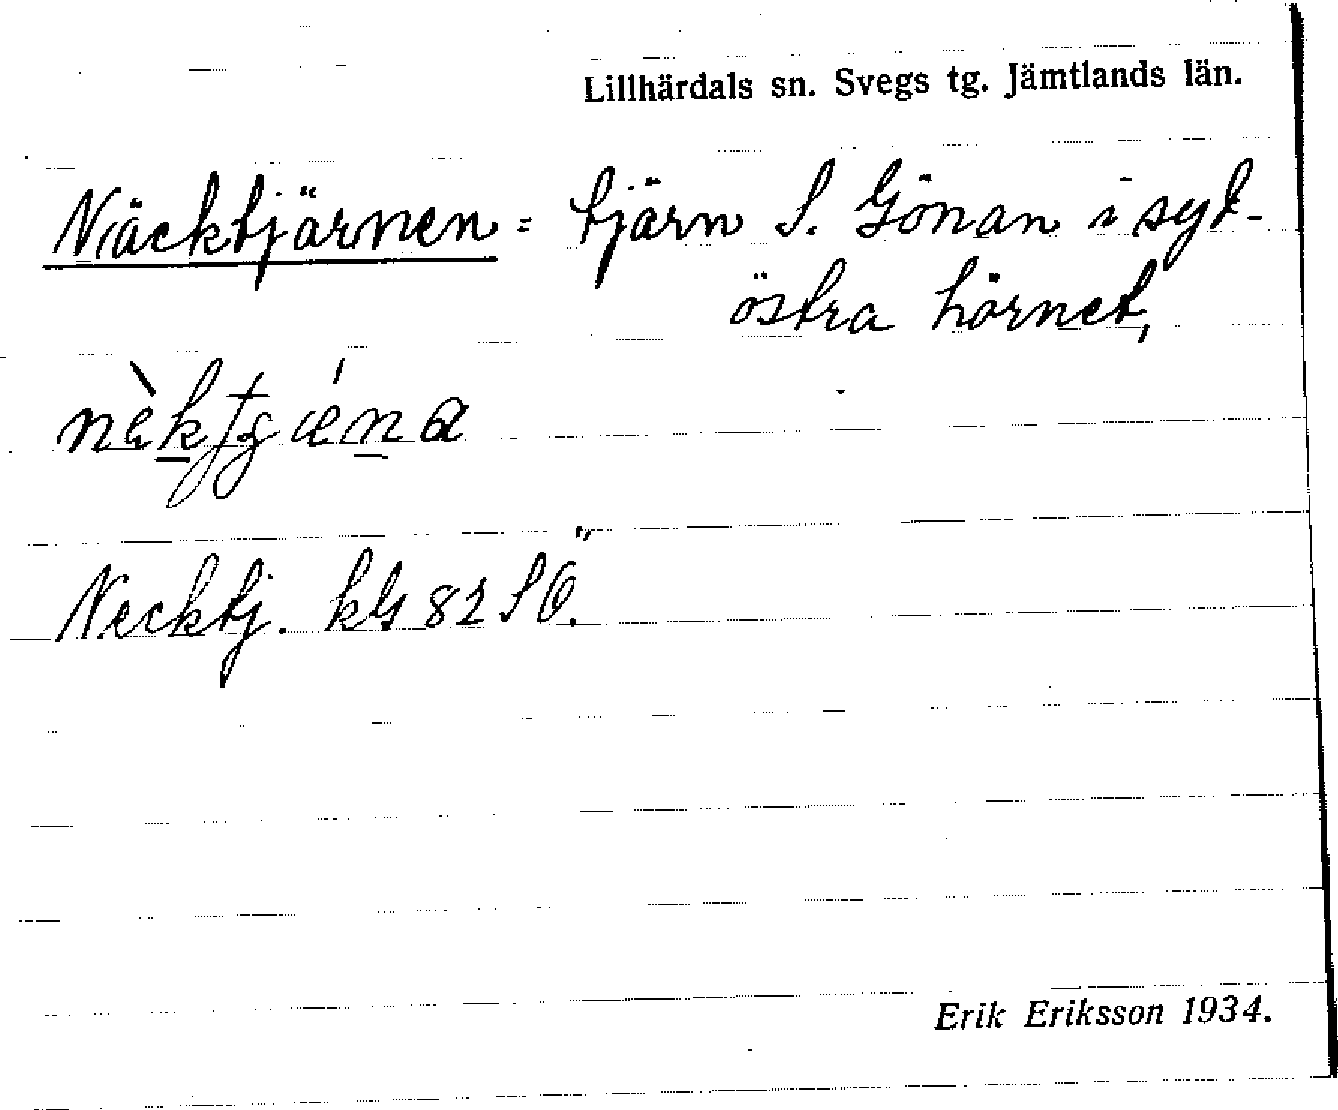 Lillhärdals sn. Svegs tg. Jämtlands län.
Näcktjärnen = tjärn S. Gönan i syd-
östra hörnet,
Necktj. kbl 82 SO.
Erik Eriksson 1934.